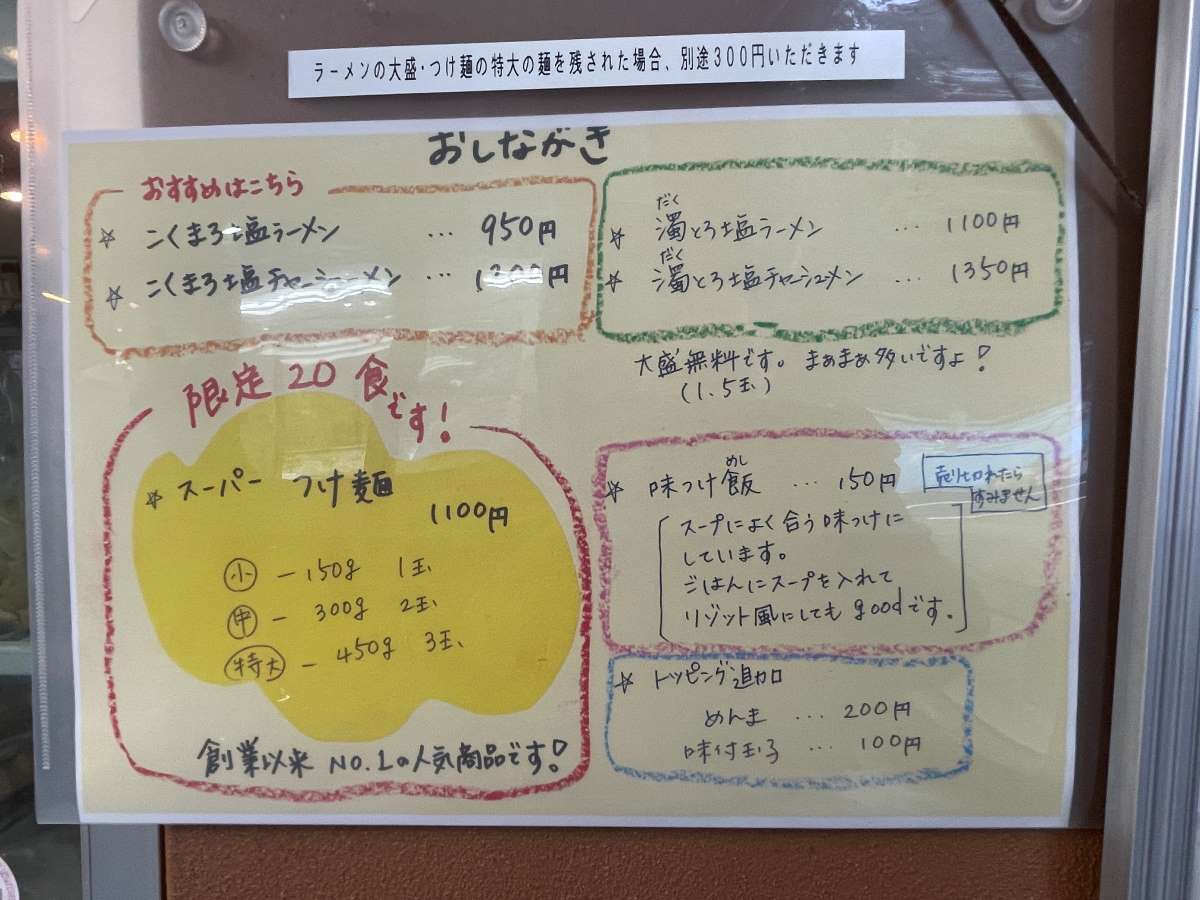 ラーメンの大盛・つけ麺の特大の麺を残された場合、別途300円いただきます
おしながき
おすすめはこちら
☆ こくまろ塩ラーメン … 950円
☆ こくまろ塩チャーシューメン … 1200円
だく
☆ 濁とろ塩ラーメン … 1100円
だく
☆ 濁とろ塩チャーシュメン … 1350円
大盛無料です。まぁまぁ多いですよ!
(1.5玉)
限定20食です!
☆ スーパー つけ麺
1100円
小 - 150g 1玉
中 - 300g 2玉
特大 - 450g 3玉
創業以来 NO.1の人気商品です!
めし
☆ 味つけ飯 … 150円
売り切れたら
すみません
スープによく合う味つけに
しています。
ごはんにスープを入れて
リゾット風にしてもgoodです。
☆ トッピング追加
めんま … 200円
味付玉子 … 100円